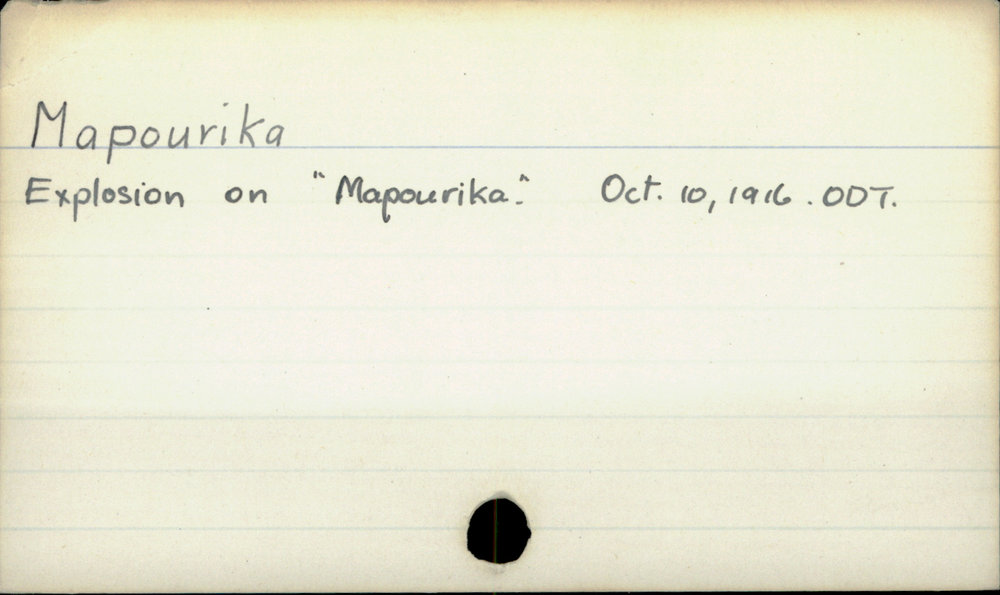 Mapourika
Explosion on "Mapourika." Oct. 10, 1916. ODT.